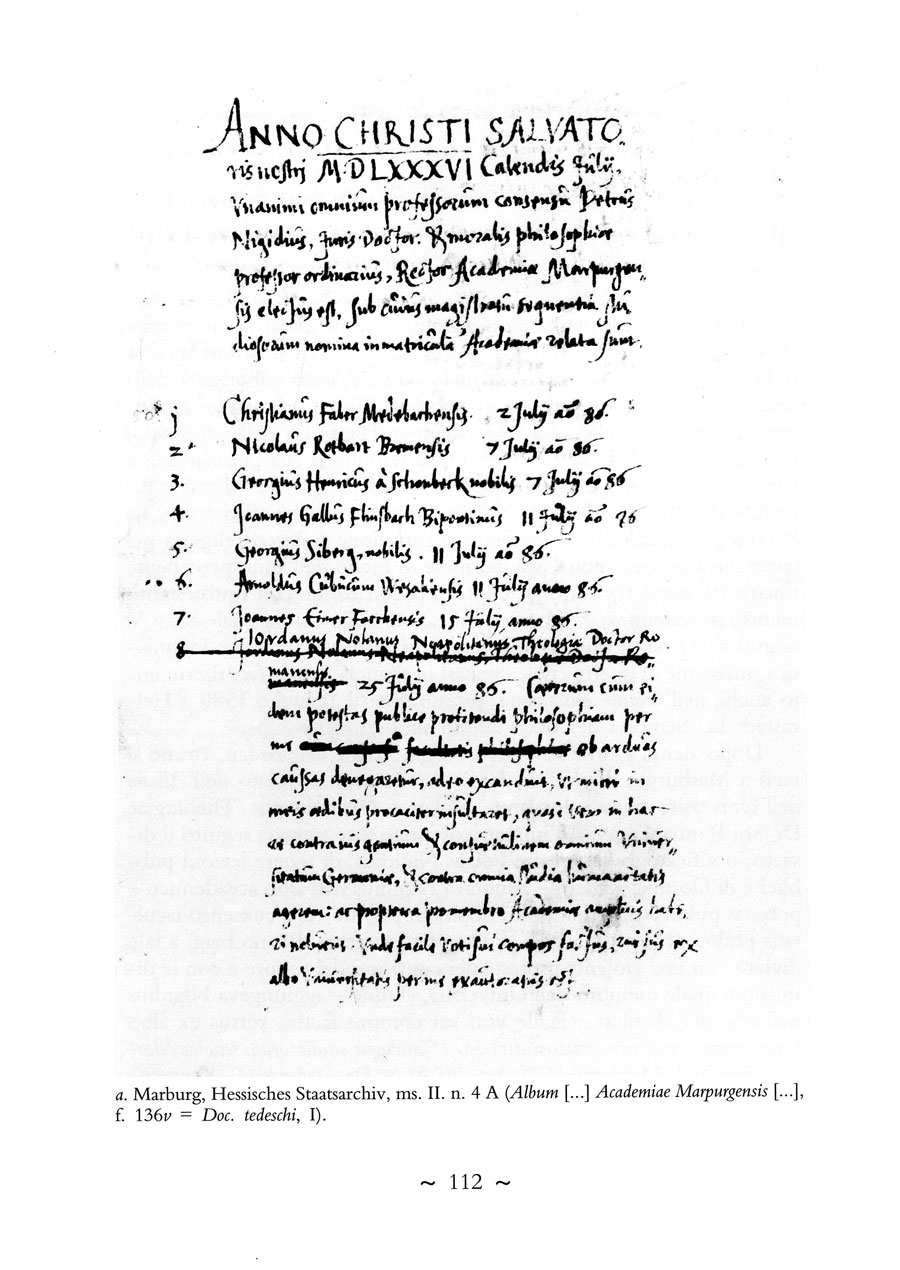 ANNO CHRISTI SALVATO„
ris nostrj M·DLXXXVI Calendis Julij,
Vnanimi omnium professorum consensu Petrus
Nigidius, Juris Doctor. & moralis philosophiae
professor ordinarius, Rector Academiae Marpurgen„
sis electus est, sub cuius magistratu sequentia stu
diosorum nomina in matricula Academiae relata sunt.
j Christianus Faber Medebachensis. 2 Julij aō 86.
2 Nicolaus Rotbart Bremensis 7 Julij aō 86.
3. Georgius Henricus à Schonberk nobilis 7 Julij aō 86
4. Joannes Gallus Bipontinus 11 Julij aō 86
5. Georgius Siberg, nobilis. 11 Julij aō 86.
6. Arnoldus Vvesaliensis 11 Julij anno 86.
7. Joannes 15 Julij anno 86.
Iordanus Nolanus Neapolitanus, Theologiae Doctor Ro
8 Jordanus Nolanus Neapolitanus, Theologiae Doctor Ro„
manensis
manensis 25 Julij anno 86. Cui ei
dem potestas publice profitendi philosophiam per
me facultatis philosophicae ob arduas
caussas denegaretur, adeo excanduit, vt mihi in
meis aedibus procaciter insultaret, quasi vero in hac
re contra ius gentium & consuetudinem omnium Vniuer„
sitatum Germaniae, & contra omnia studia humanitatis
agerem: ac propterea pro membro Academiae amplius habe„
ri Vnde facile voti sui compos factus, rursus ex
albo Vniuersitatis per me exauthoratus est.
a. Marburg, Hessisches Staatsarchiv, ms. II. n. 4 A (Album [...] Academiae Marpurgensis [...],
f. 136v = Doc. tedeschi, I).
~ 112 ~